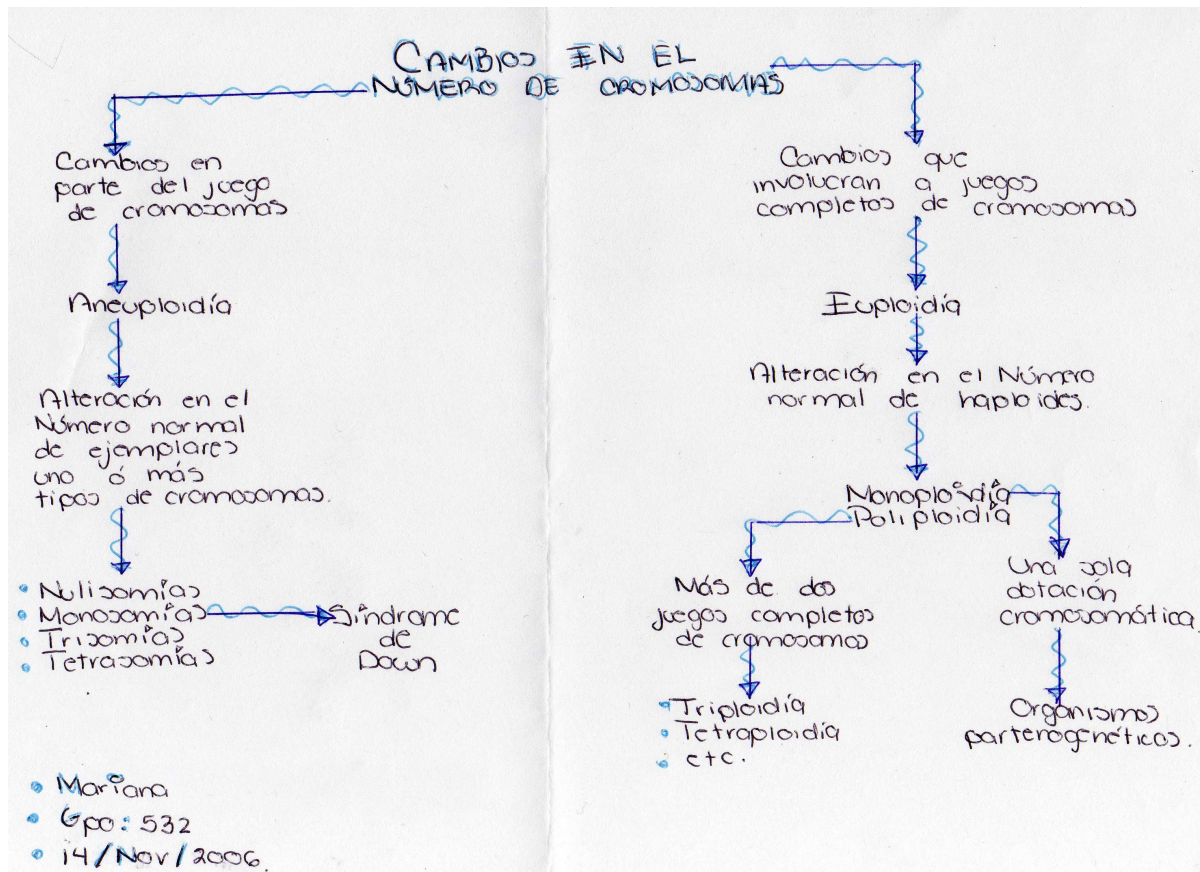 CAMBIOS EN EL
NÚMERO DE CROMOSOMAS
Cambios en
parte del juego
de cromosomas
Aneuploidía
Alteración en el
Número normal
de ejemplares
uno ó más
tipos de cromosomas.
• Nulisomías
• Monosomías
• Trisomías
• Tetrasomías
Síndrome
de
Down
Cambios que
involucran a juegos
completos de cromosomas
Euploidía
Alteración en el Número
normal de haploides.
Monoploidía
Poliploidía
Más de dos
juegos completos
de cromosomas
• Triploidía
• Tetraploidía
• etc.
Una sola
dotación
cromosomática
Organismos
partenogenéticos.
• Mariana
• Gpo: 532
• 14/Nov/2006.